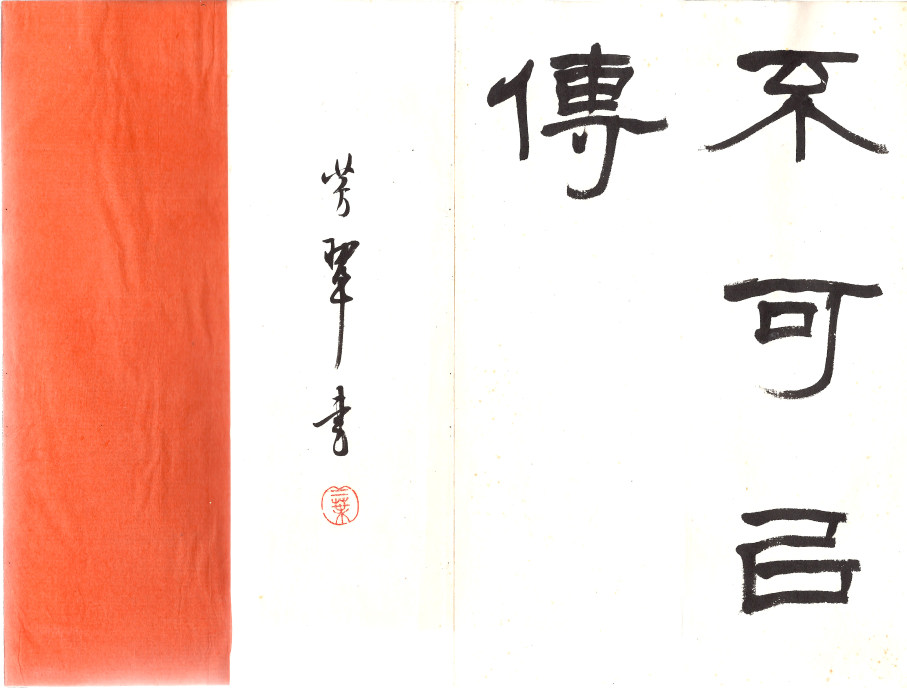 不可㠯
傳
芳翠書